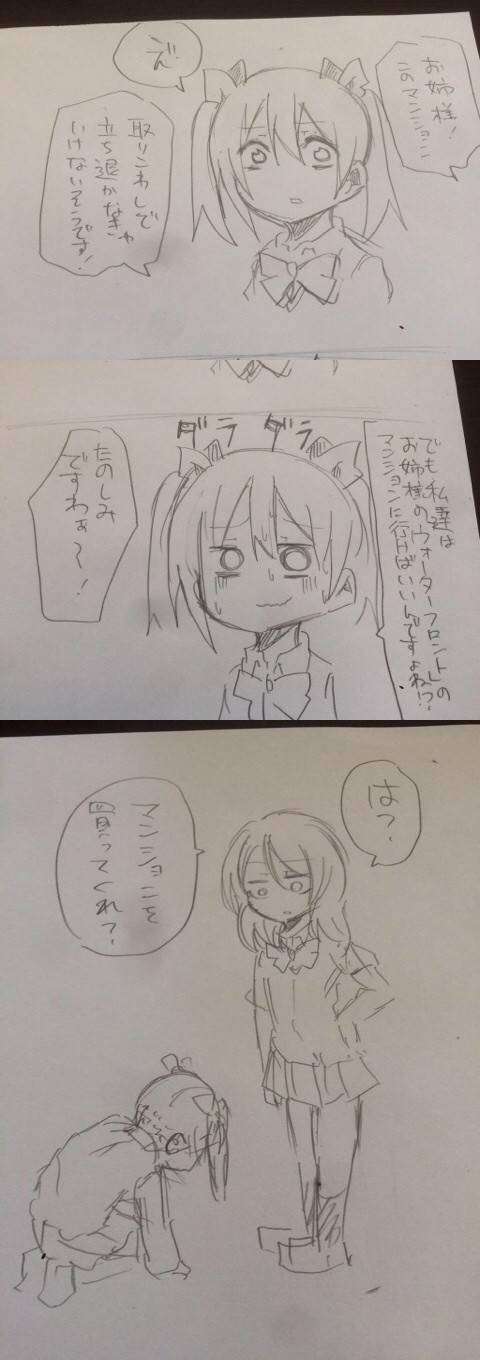 お姉様！
このマンション
え!
取りこわしで
立ち退かなきゃ
いけないそうです！
でも私達は
お姉様のウォーターフロントの
マンションに行けばいいんですよね!?
ダラ ダラ
たのしみ
ですわぁ〜！
は？
マンションを
買ってくれ？